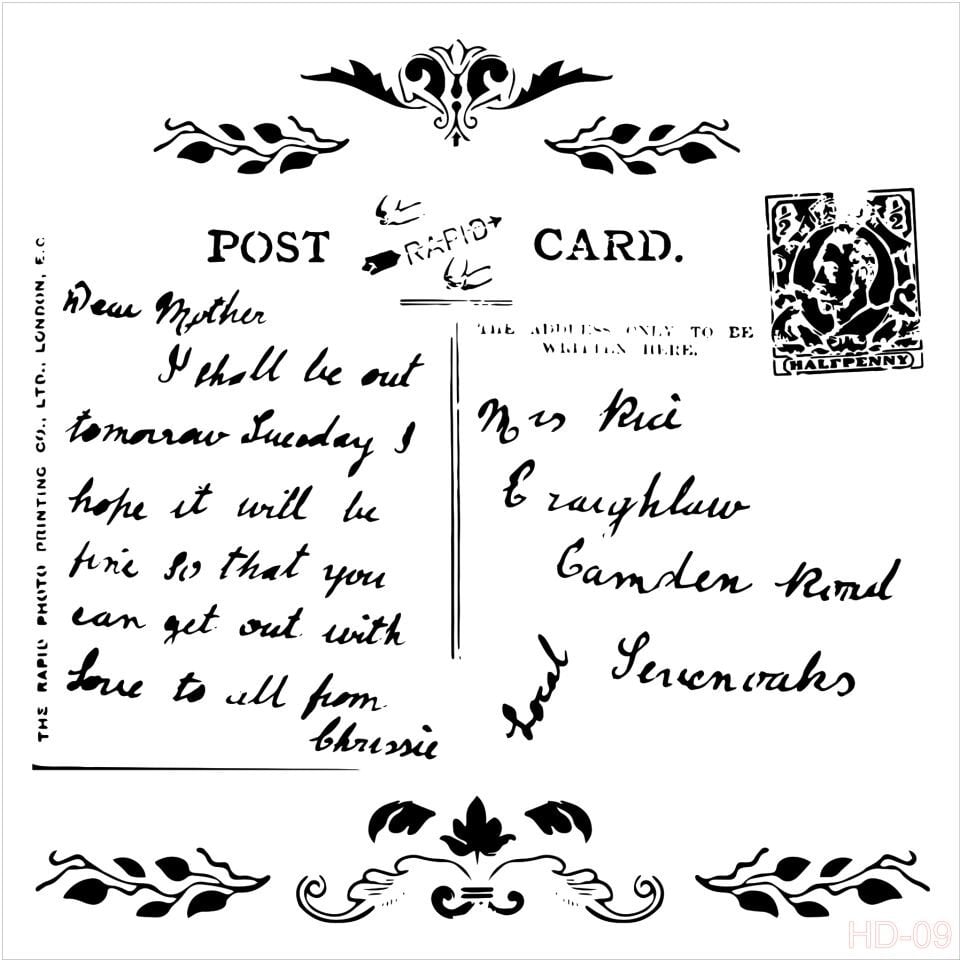 POST RAPID CARD.
½ ½
HALFPENNY
THE ADDRESS ONLY TO BE
WRITTEN HERE.
THE RAPID PHOTO PRINTING CO., LTD., LONDON, E.C
Dear Mother
I shall be out
tomorrow Tuesday I
hope it will be
fine so that you
can get out with
Love to all from
Chrissie
Mrs Rice
Craighlaw
Camden Road
Sevenoaks
Local
HD-09